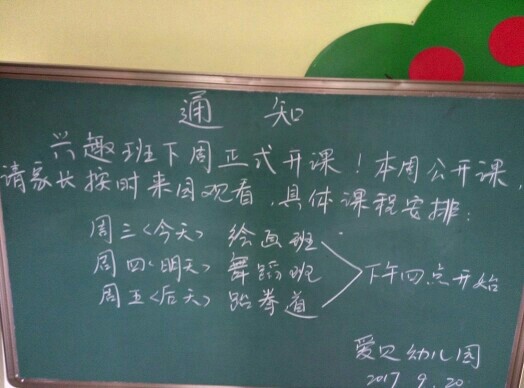 通 知
兴趣班下周正式开课！本周公开课，
请家长按时来园观看，具体课程安排：
周三<今天> 绘画班
周四<明天> 舞蹈班 下午四点开始
周五<后天> 跆拳道
爱贝幼儿园
2017.9.20